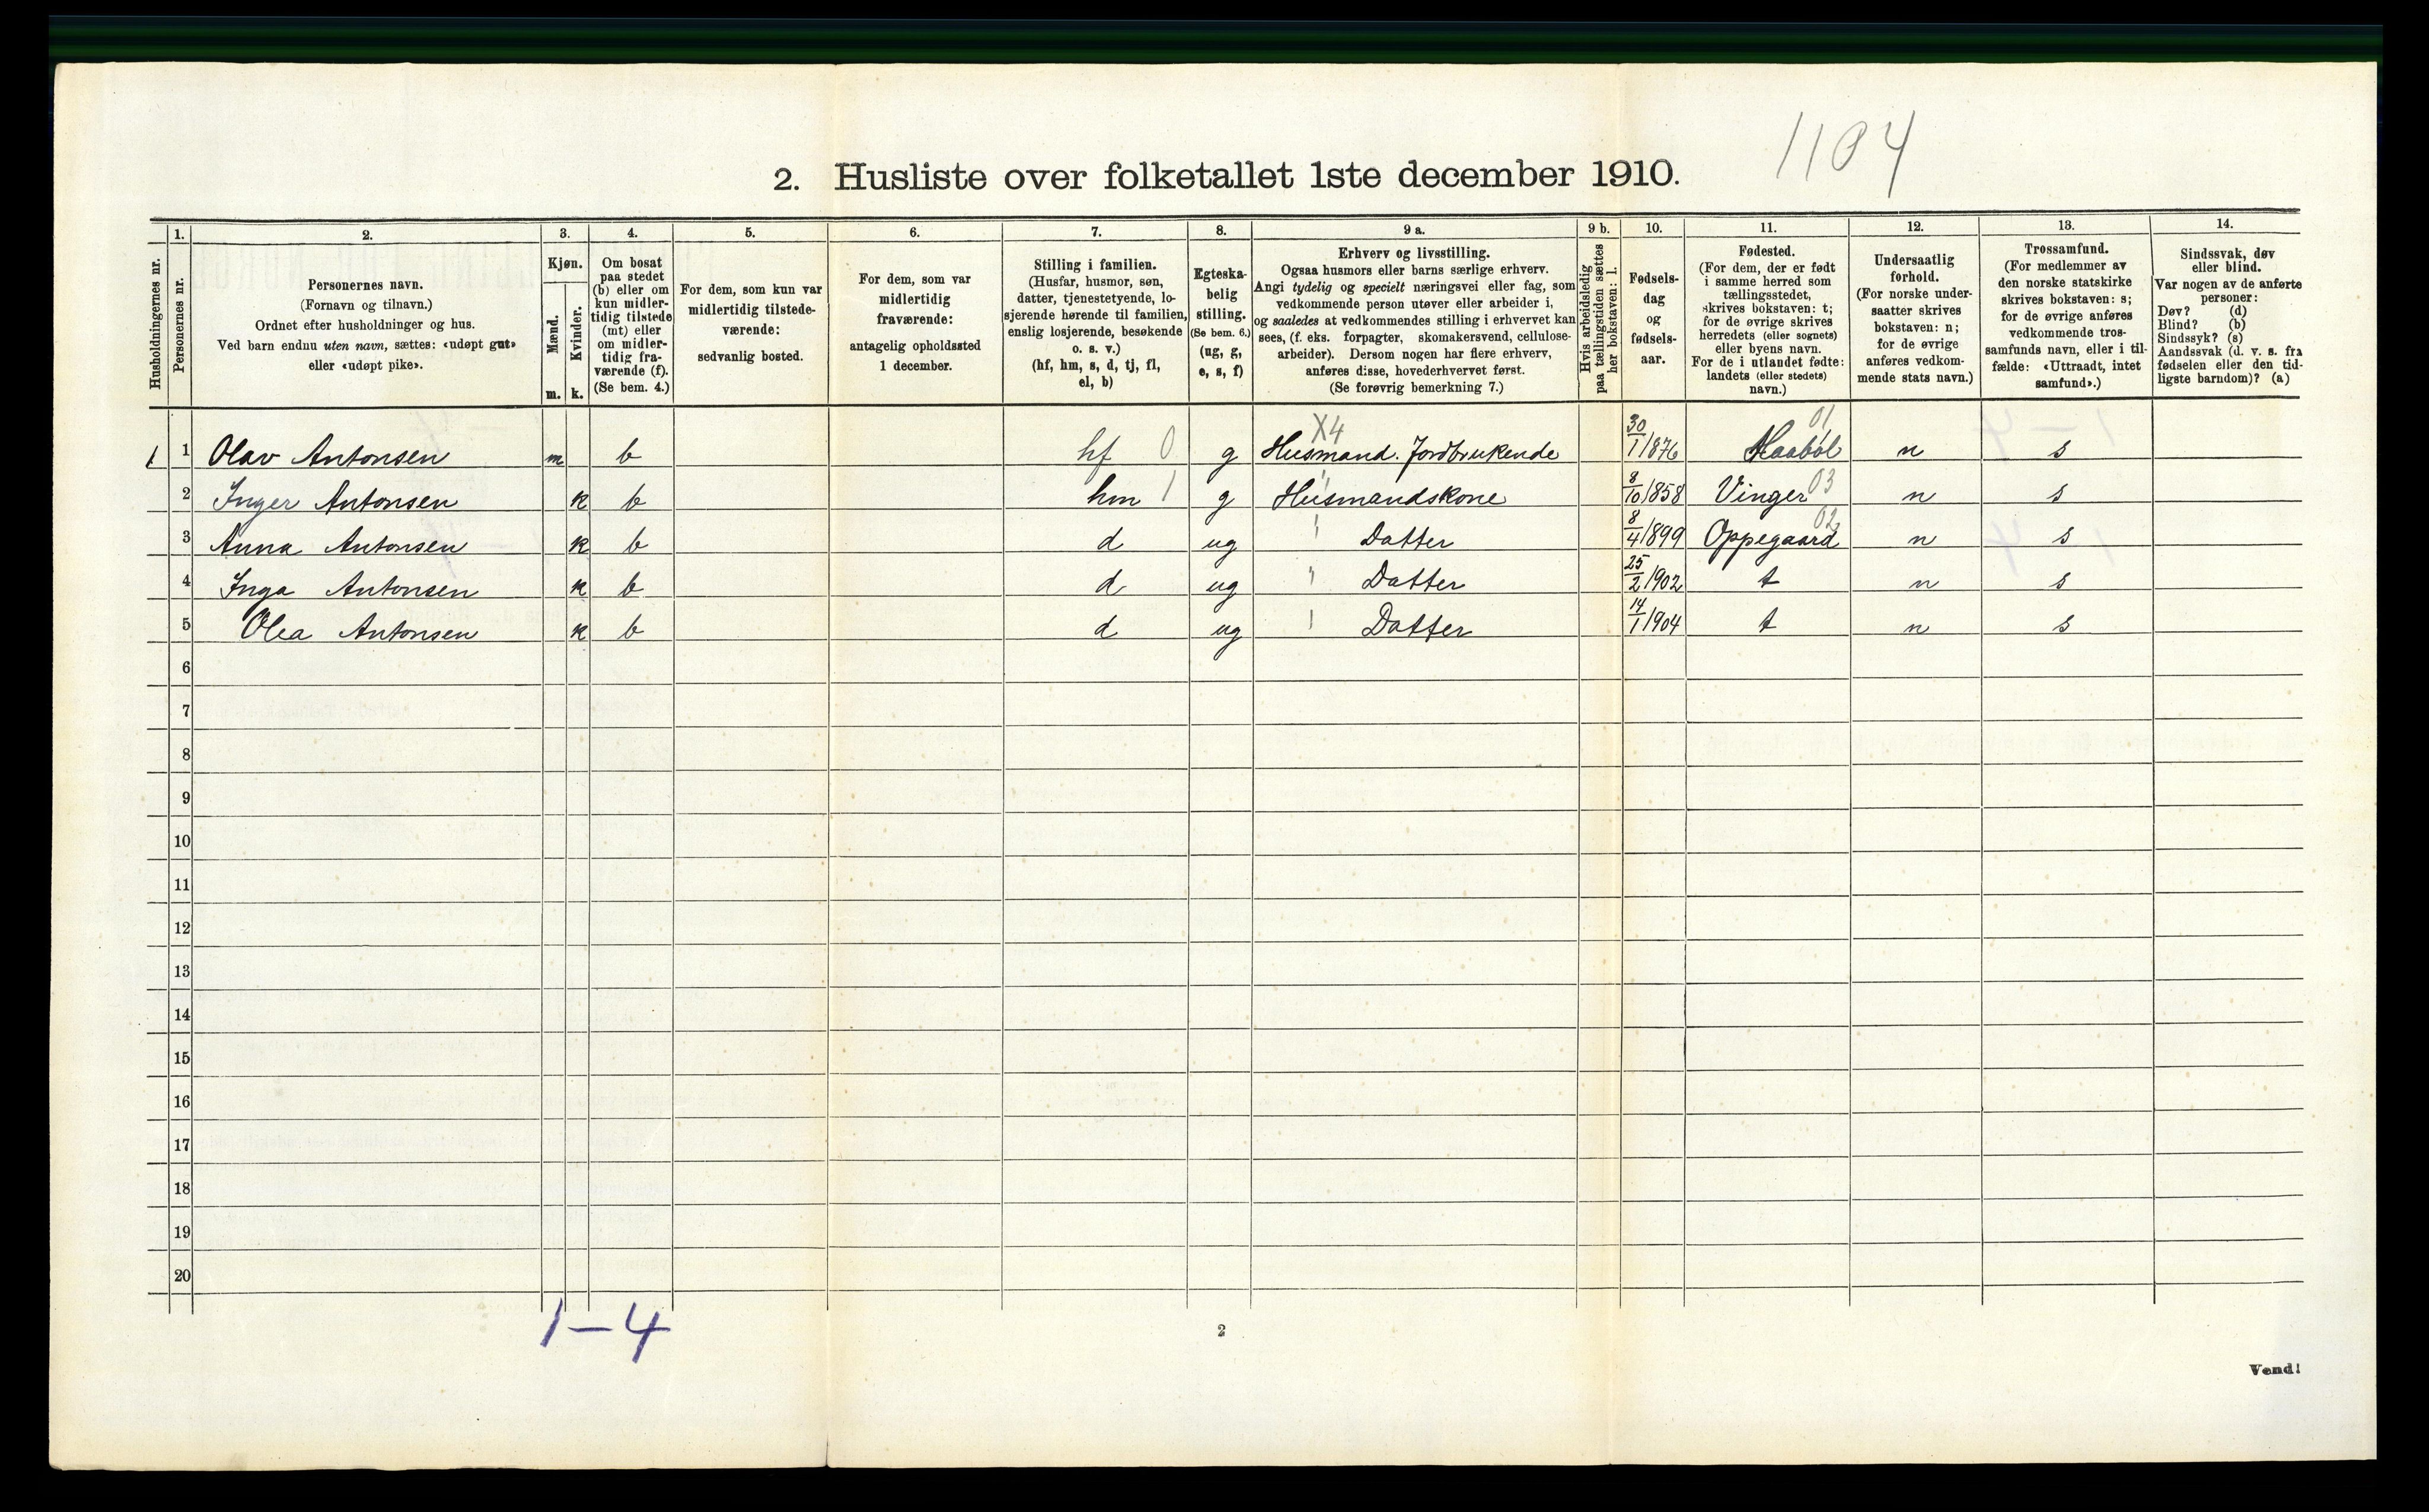 1104
2. Husliste over folketallet 1ste december 1910.
1. 2. 3. 4. 5. 6. 7. 8. 9 a. 9 b. 10. 11. 12. 13. 14.
Husholdningernes nr.
Personernes nr.
Personernes navn.
(Fornavn og tilnavn.)
Ordnet efter husholdninger og hus.
Ved barn endnu uten navn, sættes: «udøpt gut»
eller «udøpt pike».
Kjøn.
Mænd.
Kvinder.
m. k.
Om bosat
paa stedet
(b) eller om
kun midler-
tidig tilstede
(mt) eller
om midler-
tidig fra-
værende (f).
(Se bem. 4.)
For dem, som kun var
midlertidig tilstede-
værende:
sedvanlig bosted.
For dem, som var
midlertidig
fraværende:
antagelig opholdssted
1 december.
Stilling i familien.
(Husfar, husmor, søn,
datter, tjenestetyende, lo-
sjerende hørende til familien,
enslig losjerende, besøkende
o. s. v.)
(hf, hm, s, d, tj, fl,
el, b)
Egteska-
belig
stilling.
(Se bem. 6.)
(ug, g,
e, s, f)
Erhverv og livsstilling.
Ogsaa husmors eller barns særlige erhverv.
Angi tydelig og specielt næringsvei eller fag, som
vedkommende person utøver eller arbeider i,
og saaledes at vedkommendes stilling i erhvervet kan
sees, (f. eks. forpagter, skomakersvend, cellulose-
arbeider). Dersom nogen har flere erhverv,
anføres disse, hovederhvervet først.
(Se forøvrig bemerkning 7.)
Hvis arbeidsledig
paa tællingstiden sættes
her bokstaven: l.
Fødsels-
dag
og
fødsels-
aar.
Fødested.
(For dem, der er født
i samme herred som
tællingsstedet,
skrives bokstaven: t;
for de øvrige skrives
herredets (eller sognets)
eller byens navn.
For de i utlandet fødte:
landets (eller stedets)
navn.)
Undersaatlig
forhold.
(For norske under-
saatter skrives
bokstaven: n;
for de øvrige
anføres vedkom-
mende stats navn.)
Trossamfund.
(For medlemmer av
den norske statskirke
skrives bokstaven: s;
for de øvrige anføres
vedkommende tros-
samfunds navn, eller i til-
fælde: «Uttraadt, intet
samfund».)
Sindssvak, døv
eller blind.
Var nogen av de anførte
personer:
Døv? (d)
Blind? (b)
Sindssyk? (s)
Aandssvak (d. v. s. fra
fødselen eller den tid-
ligste barndom)? (a)
X4 01
1 1 Olav Antonsen m b hf 0 g Husmand. Jordbrukende 30/1 1876 Haabøl n s
2 Inger Antonsen k b hm 1 g Husmandskone 8/10 1858 Vinger 03 n s
3 Anna Antonsen k b d ug " Datter 8/4 1899 Oppegaard 02 n s
4 Inga Antonsen k b d ug " Datter 25/2 1902 t n s
5 Olea Antonsen k b d ug " Datter 14/1 1904 t n s
6
7
8
9
10
11
12
13
14
15
16
17
18
19
20
1-4
2
Vend!